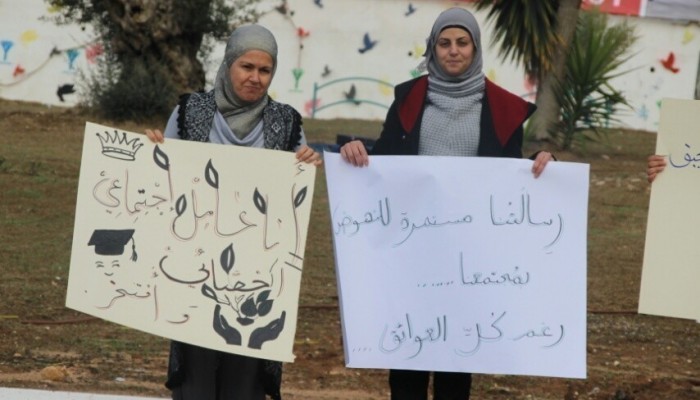 أنا عامل إجتماعي
أخصائي
و أفتخر
رسالتنا مستمرة للنهوض
بمجتمعنا .......
رغم كلّ العوائق ....